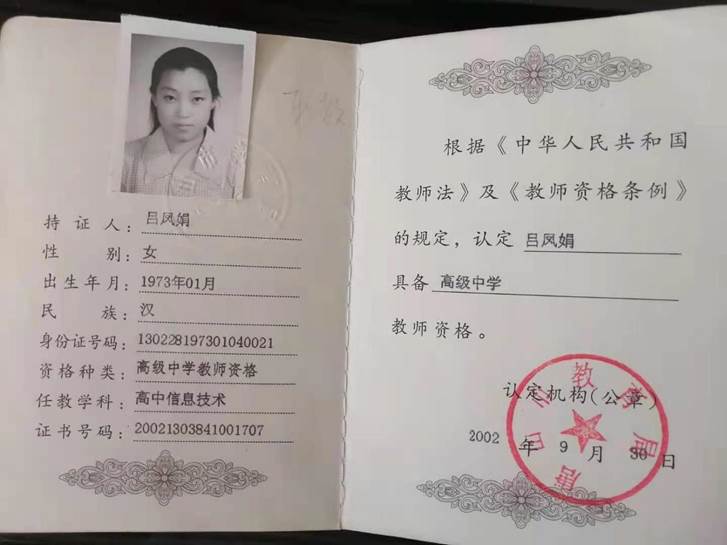 持证人：吕凤娟
性别：女
出生年月：1973年01月
民族：汉
身份证号码：130228197301040021
资格种类：高级中学教师资格
任教学科：高中信息技术
证书号码：20021303841001707
根据《中华人民共和国
教师法》及《教师资格条例》
的规定，认定 吕凤娟
具备 高级中学
教师资格。
认定机构(公章)
2002年9月30日
唐山市教育局